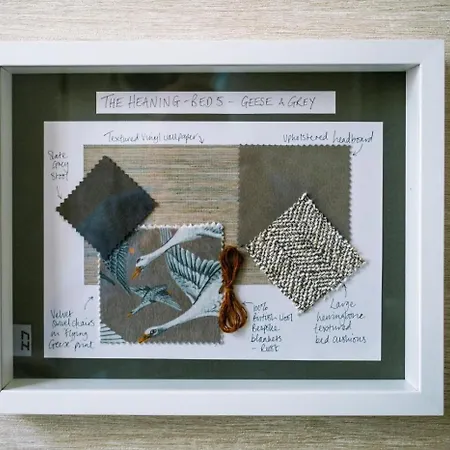 THE HEANING - BED 5 - GEESE & GREY
Textured vinyl wallpaper
Upholstered headboard
Slate
Grey
Stool
Velvet
chairs
in Flying
Geese print
100%
British Wool
Bespoke
blankets
- Rust
Large
herringbone
textured
bed cushions